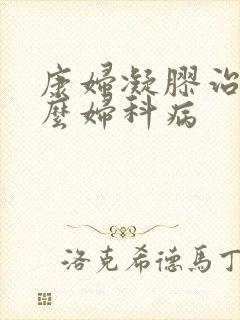 康婦凝膠治
麼婦科病
洛克希德馬丁